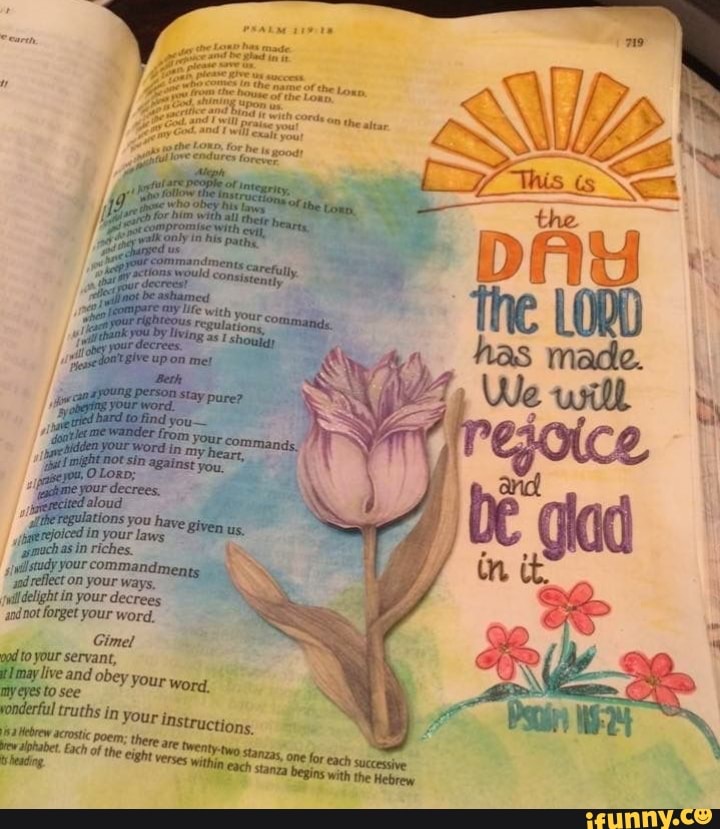 e earth.
PSALM 119:18
719
day the LORD has made.
rejoice and be glad in it.
LORD, please save us.
LORD, please give us success.
one who comes in the name of the LORD.
bless you from the house of the LORD.
is God, shining upon us.
the sacrifice and bind it with cords on the altar.
are my God, and I will praise you!
You are my God, and I will exalt you!
thanks to the LORD, for he is good!
faithful love endures forever.
Aleph
119 Joyful are people of integrity,
who follow the instructions of the LORD.
Joyful are those who obey his laws
and search for him with all their hearts.
They do not compromise with evil,
and they walk only in his paths.
You have charged us
to keep your commandments carefully.
Oh, that my actions would consistently
reflect your decrees!
Then I will not be ashamed
when I compare my life with your commands.
As I learn your righteous regulations,
I will thank you by living as I should!
I will obey your decrees.
Please don't give up on me!
Beth
How can a young person stay pure?
By obeying your word.
I have tried hard to find you—
don't let me wander from your commands.
I have hidden your word in my heart,
that I might not sin against you.
I praise you, O LORD;
teach me your decrees.
I have recited aloud
all the regulations you have given us.
I have rejoiced in your laws
as much as in riches.
I will study your commandments
and reflect on your ways.
I will delight in your decrees
and not forget your word.
Gimel
ood to your servant,
t I may live and obey your word.
my eyes to see
wonderful truths in your instructions.
is a Hebrew acrostic poem; there are twenty-two stanzas, one for each successive
brew alphabet. Each of the eight verses within each stanza begins with the Hebrew
its heading.
This is
the
DAY
the LORD
has made.
We will
rejoice
and
be glad
in it.
Psalm 118:24
ifunny.co